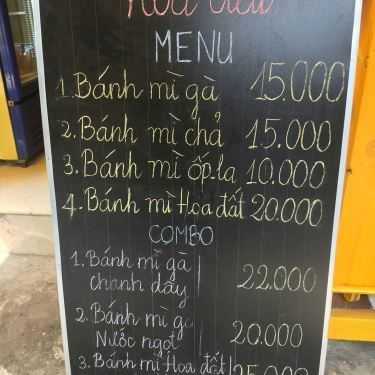 MENU
1. Bánh mì gà 15.000
2. Bánh mì chả 15.000
3. Bánh mì ốp.la 10.000
4. Bánh mì Hoa đất 20.000
COMBO
1. Bánh mì gà
chanh dây 22.000
2. Bánh mì gà
Nước ngọt 20.000
3. Bánh mì Hoa đất